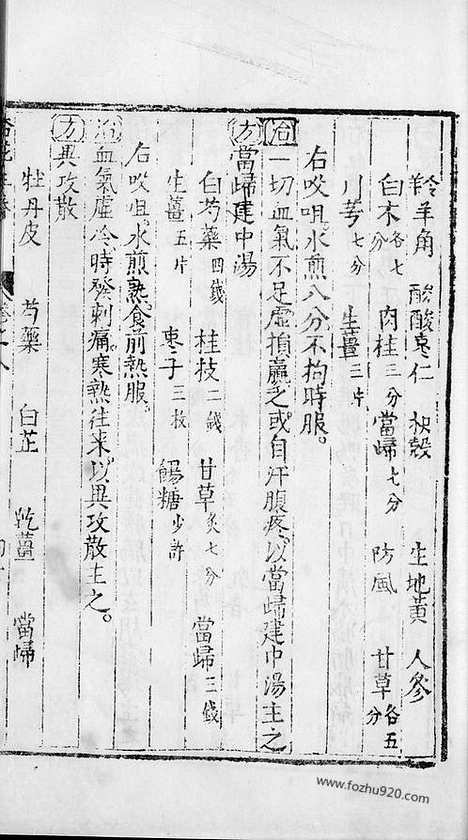 羚羊角 酸棗仁 枳殼 生地黃 人參
白术各七分 肉桂三分 當歸七分 防風 甘草各五分
川芎七分 生薑三片
右㕮咀水煎八分不拘時服。
治一切血氣不足虛損羸乏或自汗腹疼以當歸建中湯主之
方當歸建中湯
白芍藥四錢 桂枝二錢 甘草炙七分 當歸三錢
生薑五片 棗子三枚 餳糖少許
右㕮咀水煎熟食前熱服。
治血氣虛冷時發刺痛寒熱往來以異攻散主之。
方異攻散
牡丹皮 芍藥 白芷 乾薑 當歸
www.fozhu920.com